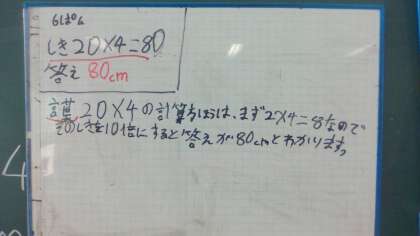 6ぱん
しき20×4=80
答え 80cm
計算 20×4の計算ちほうほうは、まず2×4=8なので
そのしきを10倍にすると答えが80cmとわかります。